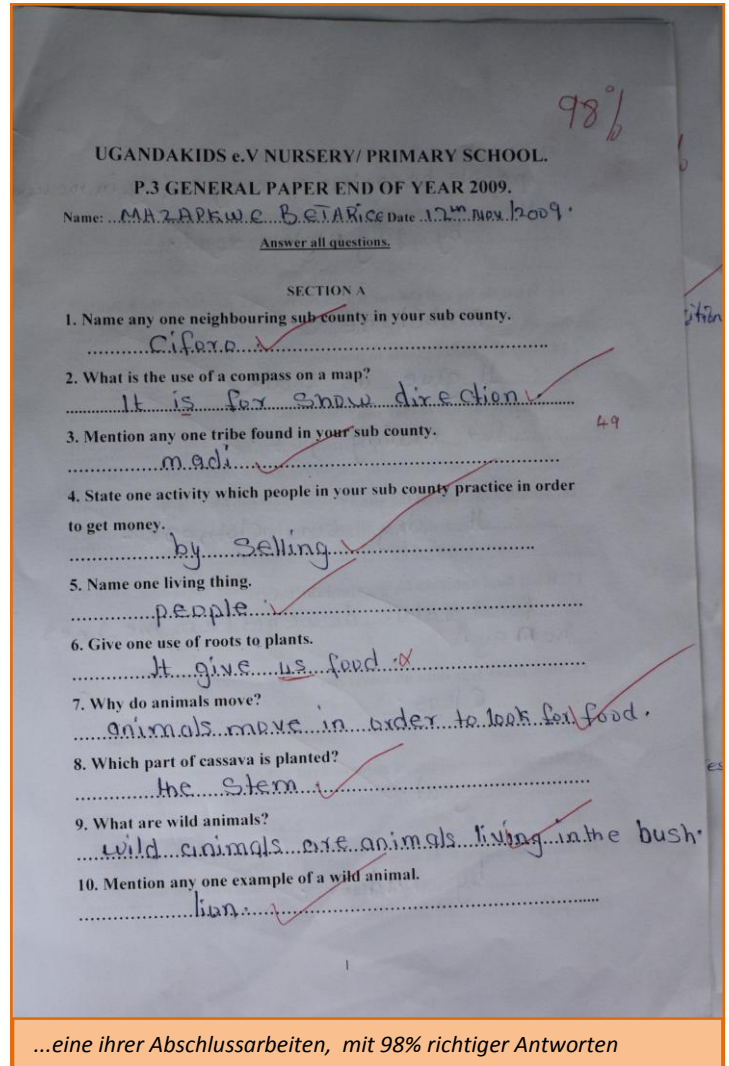 98%
UGANDAKIDS e.V NURSERY/ PRIMARY SCHOOL.
P.3 GENERAL PAPER END OF YEAR 2009.
Name: MAZAPKWE BETARICE Date 12th Nov/2009.
Answer all questions.
SECTION A
1. Name any one neighbouring sub county in your sub county.
Ciforo
2. What is the use of a compass on a map?
It is for show direction.
3. Mention any one tribe found in your sub county.
49
madi
4. State one activity which people in your sub county practice in order
to get money.
by selling
5. Name one living thing.
people.
6. Give one use of roots to plants.
It give us food.
7. Why do animals move?
animals move in order to look for food.
8. Which part of cassava is planted?
the stem
9. What are wild animals?
wild animals are animals living in the bush.
10. Mention any one example of a wild animal.
lion.
1
...eine ihrer Abschlussarbeiten, mit 98% richtiger Antworten